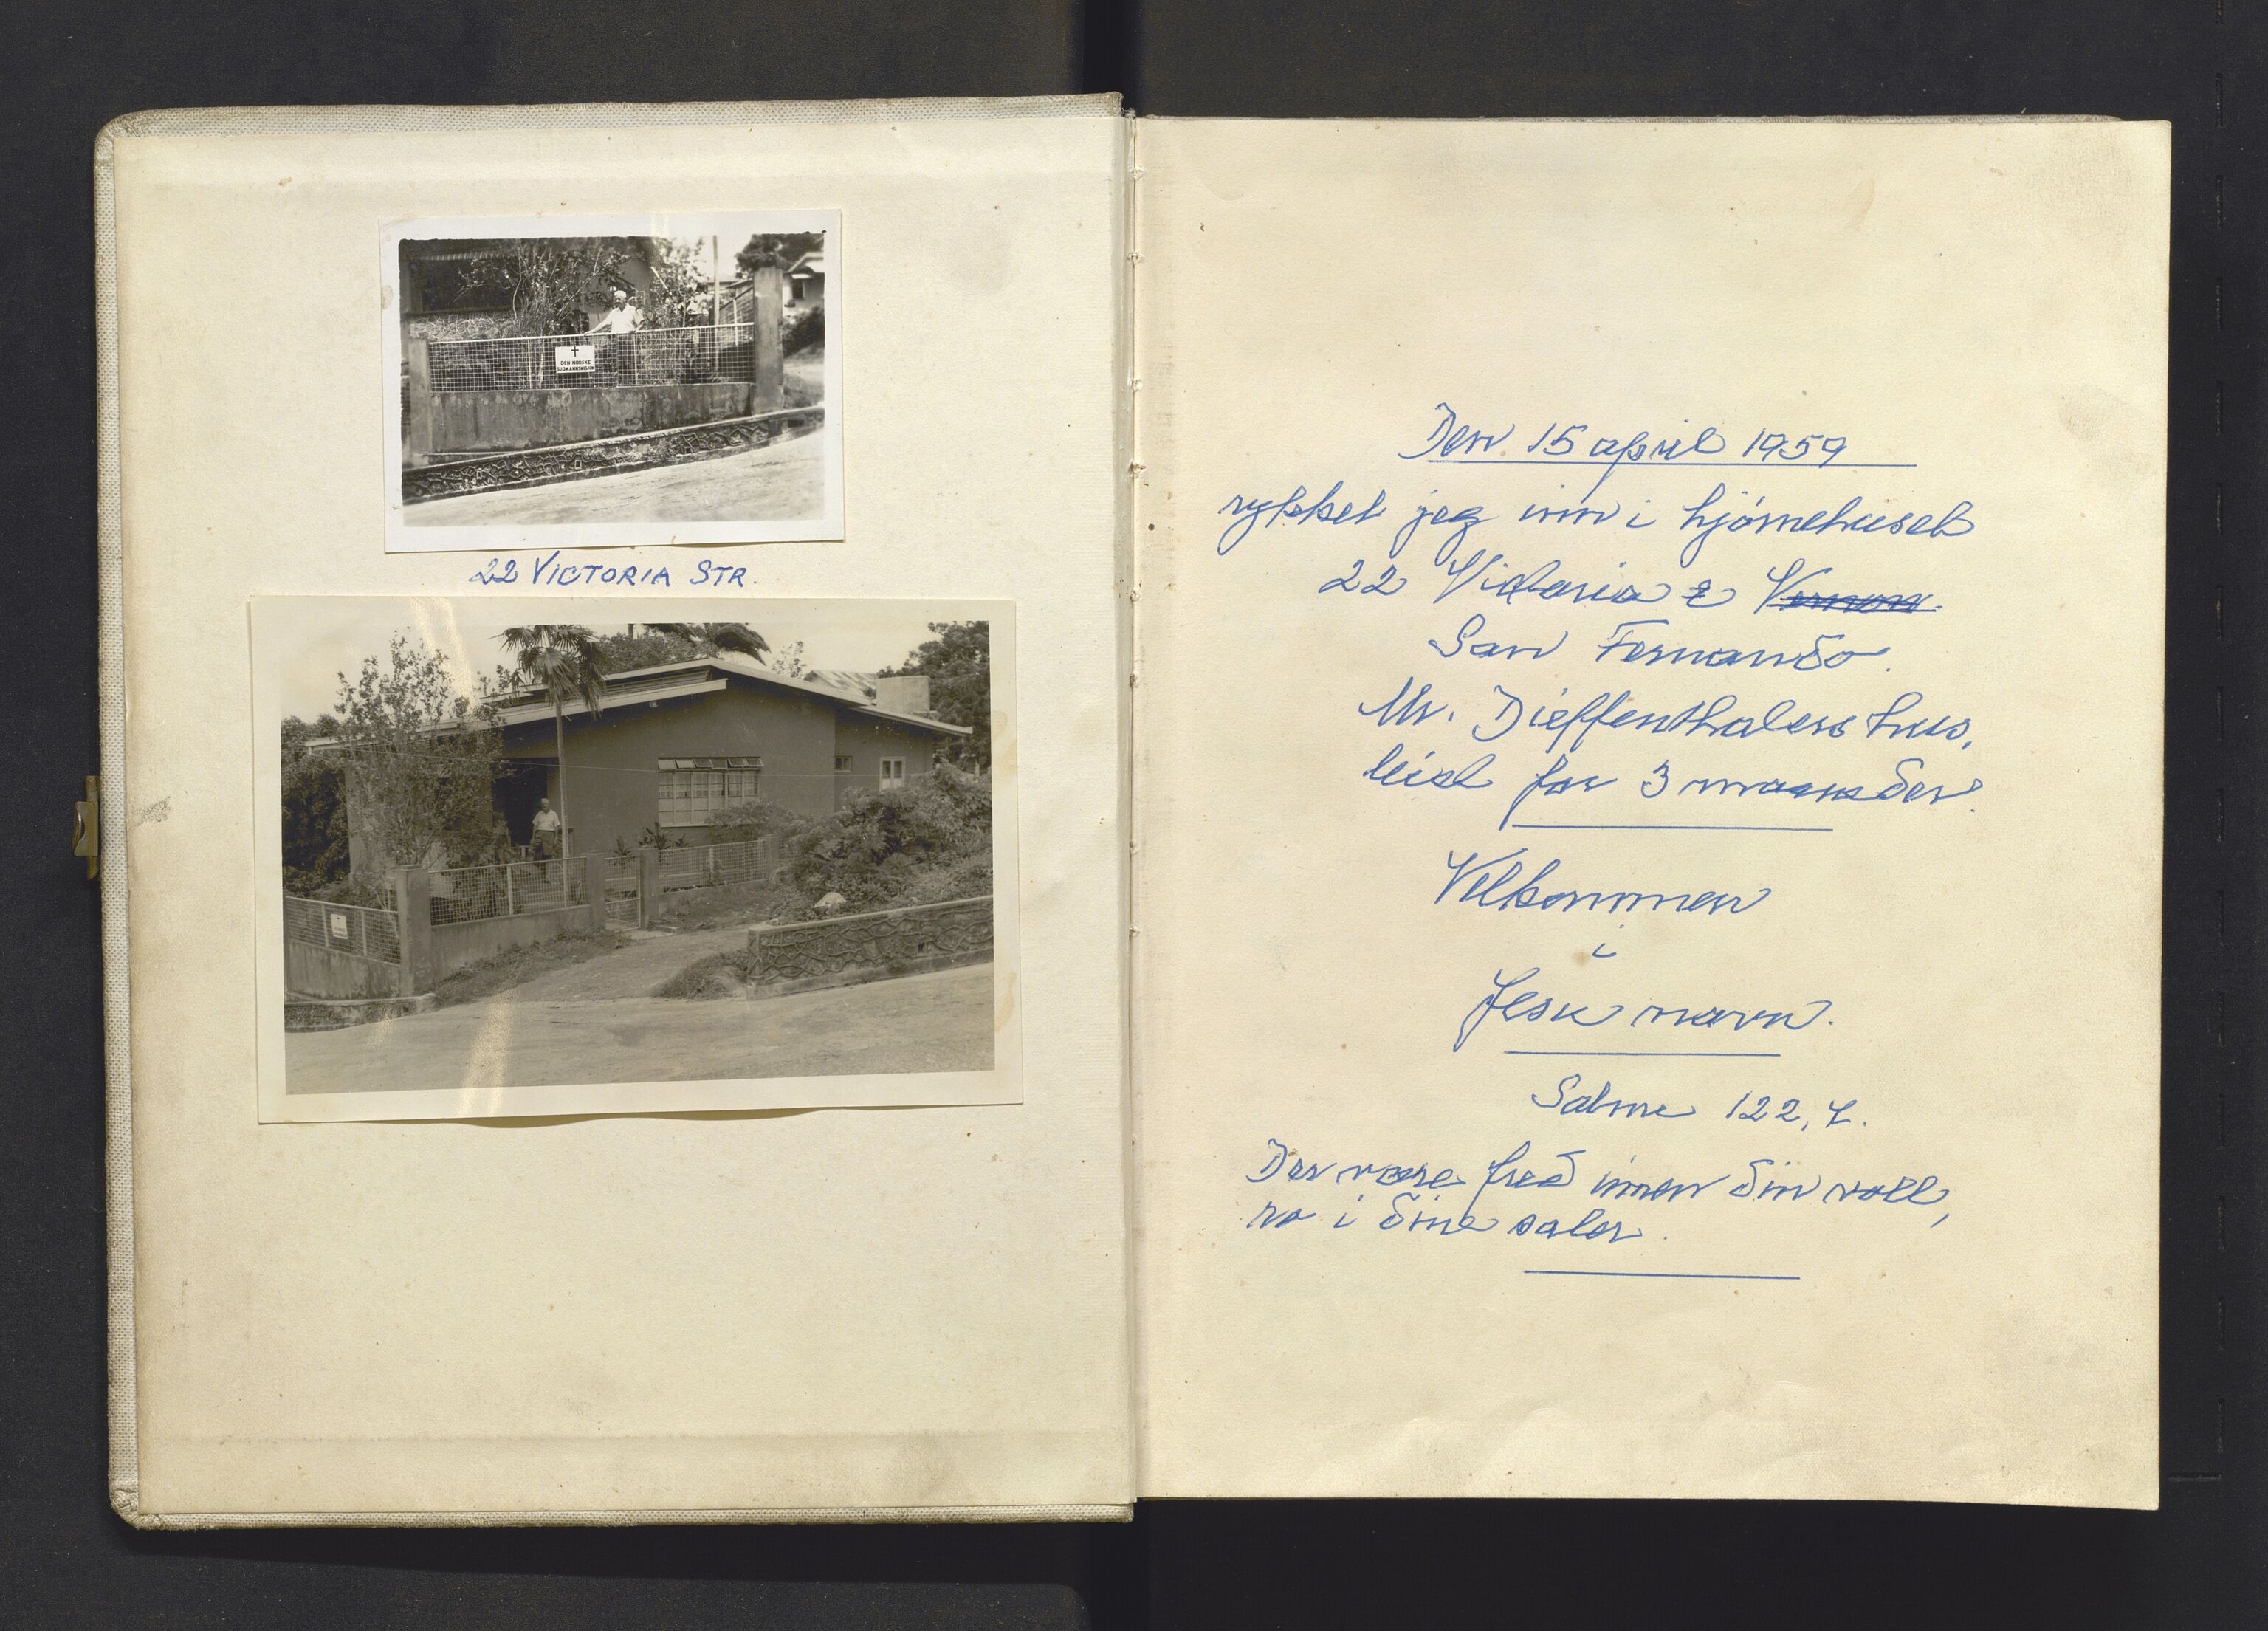 DEN NORSKE
SJØMANNSMISJON
22 VICTORIA STR.
Den 15 april 1959
rykket jeg inn i hjørnehuset
22 Victoria & Vernon.
San Fernando.
Mr. Dieffenthalers hus,
leid for 3 maander.
Velkommen
i
Jesu navn.
Salme 122, 7.
Der være fred innen din voll,
ro i dine saler.